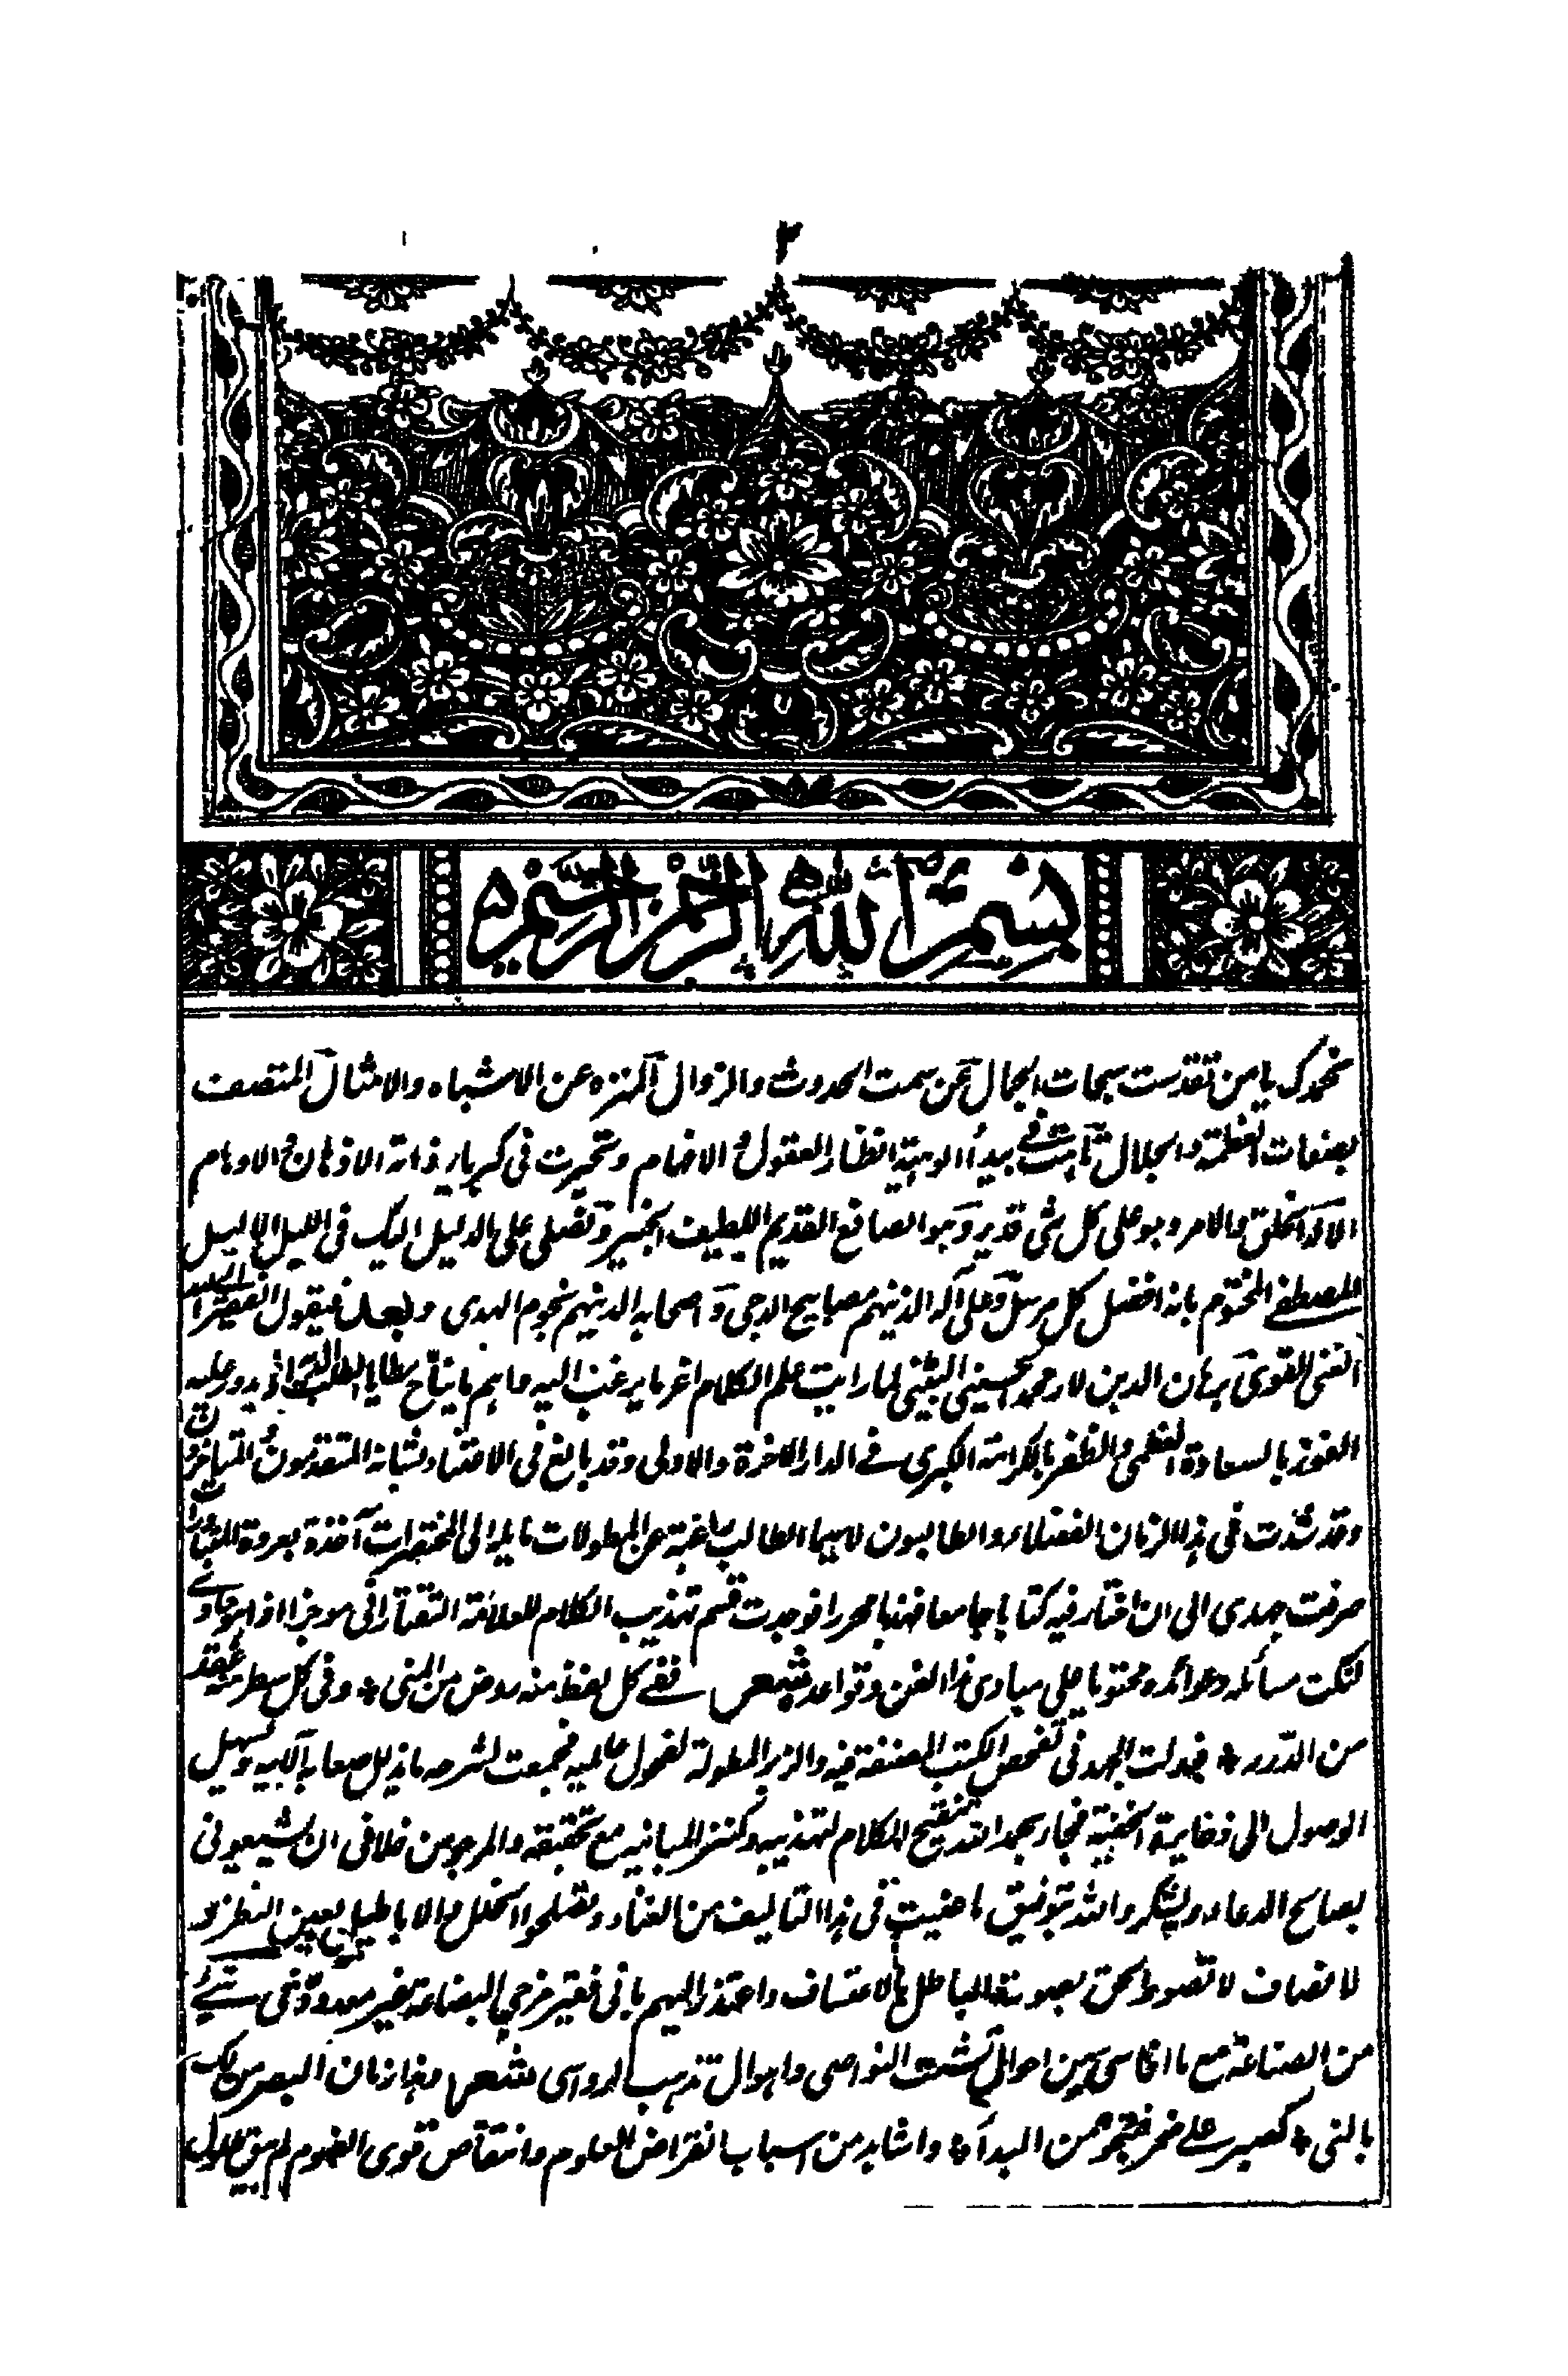 ٢
بسم الله الرحمن الرحيم
نحمدك يا من تقدست سبحات الجمال عن سمت الحدوث والزوال المنزه عن الاشباه والامثال المتصف
بصفات العظمة والجلال تاهت في بيداء الوهيته انظار العقول و الافهام وتحيرت فى كبرياء ذاته الاذهان و الاوهام
الا له الخلق والامر وهو على كل شئ قدير وهو الصانع القديم اللطيف الخبير ونصلى على الدليل اليك فى الليل الاليل
المصطفى المختوم بانه افضل كل مرسل وعلى آله الذينهم مصابيح الدجى و اصحابه الذينهم نجوم الهدى وبعد فيقول الفقير الى الله
الغنى القوى برهان الدين لار محمد الحسينى لما رايت علم الكلام اغر ما يرغب اليه واهم ما يناخ مطايا الطلب لديه اذ يدور عليه
الفوز بالسعادة العظمى والظفر بالكرامة الكبرى فى الدار الاخرة والاولى وقد بالغ فى الاعتناء بشانه المتقدمون و المتاخرون
وقد شذت فى هذا الزمان الفضلاء والطالبون لاسيما الطالب راغبة عن المطولات مايلة الى المختصرات آخذة بعروة
صرفت جهدى الى ان اختار فيه كتابا جامعا مهذبا محررا فوجدت قسم تهذيب الكلام للعلامة التفتازانى موجزا
لنكت مسائله وعوائده محتويا على مبادى هذا الفن وقواعد شعر ففى كل لفظ منه روض من المنى * وفى كل سطر منه عقد
من الدرر * فبذلت الجهد فى تفحص الكتب المصنفة فيه والزبر المطولة لفحول عالميه فجمعت لشرحه ما يذلل صعابه آلابيه ويسهل
الوصول الى دفاينه الخفية فجاء بحمد الله تنقيح الكلام لتهذيبه وكنز المبانيه مع تحقيقه والمرجو من خلانى ان يشيعونى
بصالح الدعاء ويشكروا الله بتوفيق ما عنيت فى هذا التاليف من العناء ويصلحوا الخلل و الاباطيل بعين النظر
لانصاف لا تصويرا لحق بصورة الباطل بالاعتساف واعتذر اليهم بانى فقير مزجى البضاعة غير معدود فى شئ
من الصناعة مع ما اقاسى من احوال تشيب النواصى واهوال تذيب الرواسى شعر هذا زمان
بالنى * كصير على من البداء * واشاهد من اسباب انقراض العلوم وانتقاص قوى الفهوم لم يبق